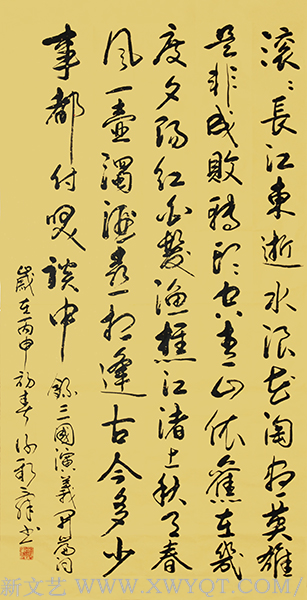 滚〻長江東逝水浪花淘尽英雄
是非成敗轉頭空青山依舊在幾
度夕陽紅白髮漁樵江渚上秋月春
風一壺濁酒喜相逢古今多少
事都付笑談中 錄三國演義开篇词
歲在丙申初春 书
新文艺 WWW.XWYQT.COM